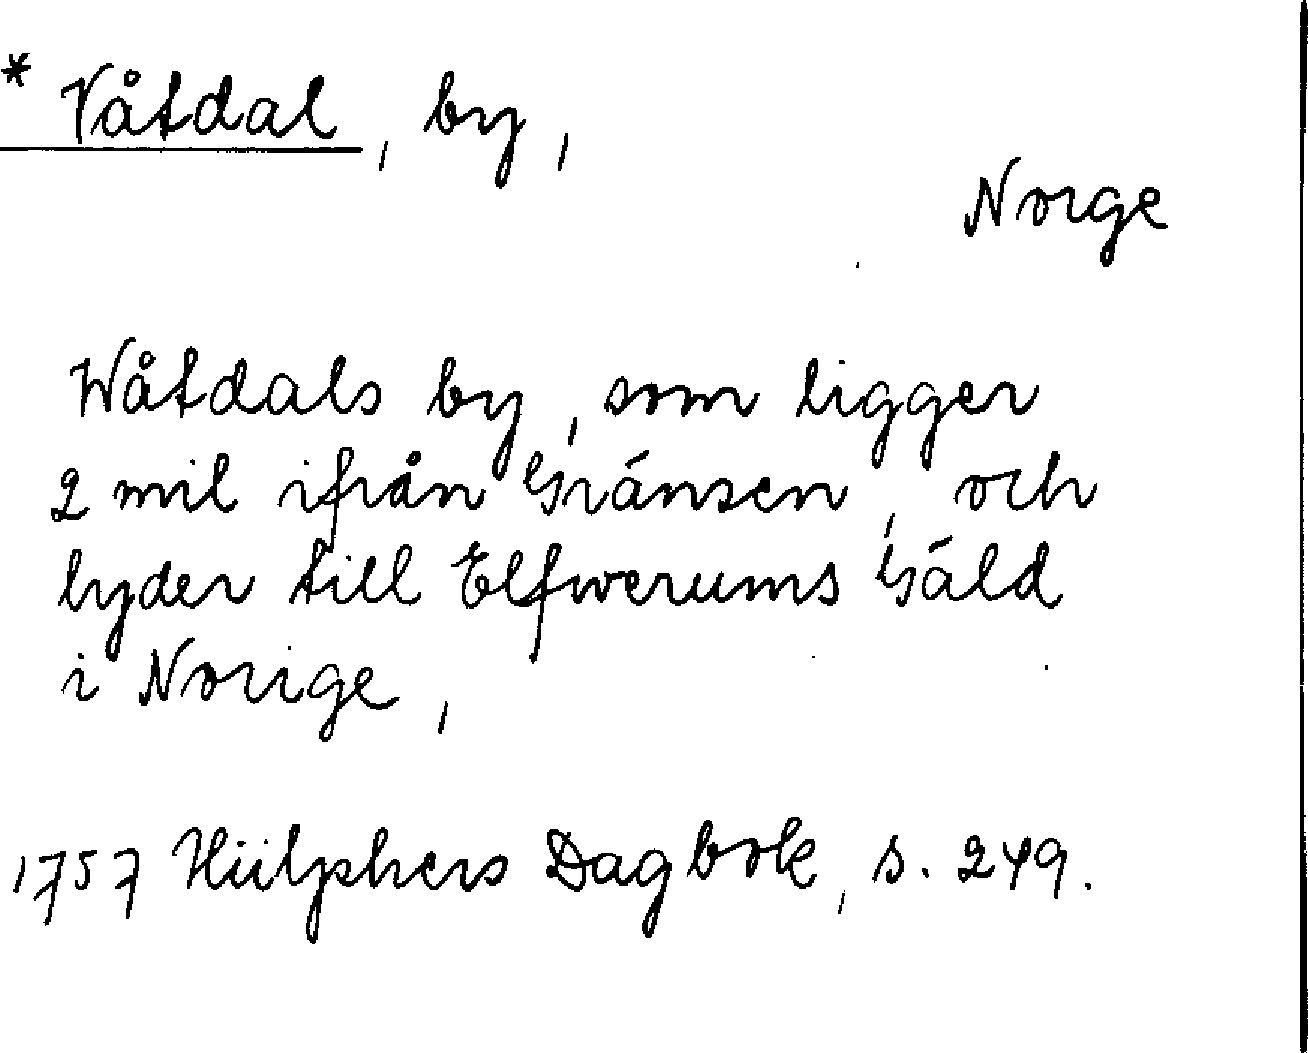 * Våtdal, by,
Norge
Wåtdals by, som ligger
2 mil ifrån Gränsen, och
lyder till Elfwerums Gäld
i Norige,
1757 Hülphers Dagbok, s. 249.